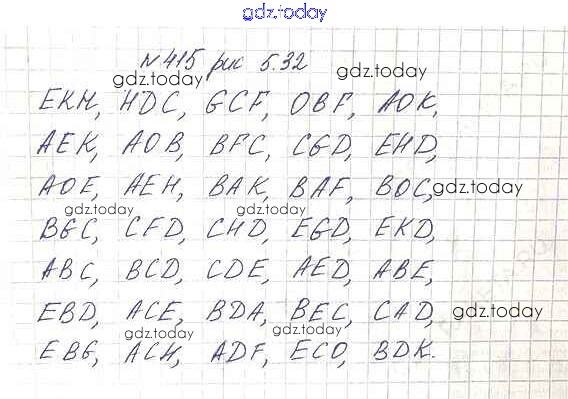 gdz.today
№415 рис 5.32
gdz.today gdz.today
EKH, HDC, GCF, OBF, AOK,
AEK, AOB, BFC, CGD, EHD,
AOE, AEH, BAK, BAF, BOC,
gdz.today
gdz.today gdz.today
BGC, CFD, CHD, EGD, EKD,
ABC, BCD, CDE, AED, ABE,
EBD, ACE, BDA, BEC, CAD,
gdz.today
gdz.today gdz.today
EBG, ACH, ADF, ECO, BDK.